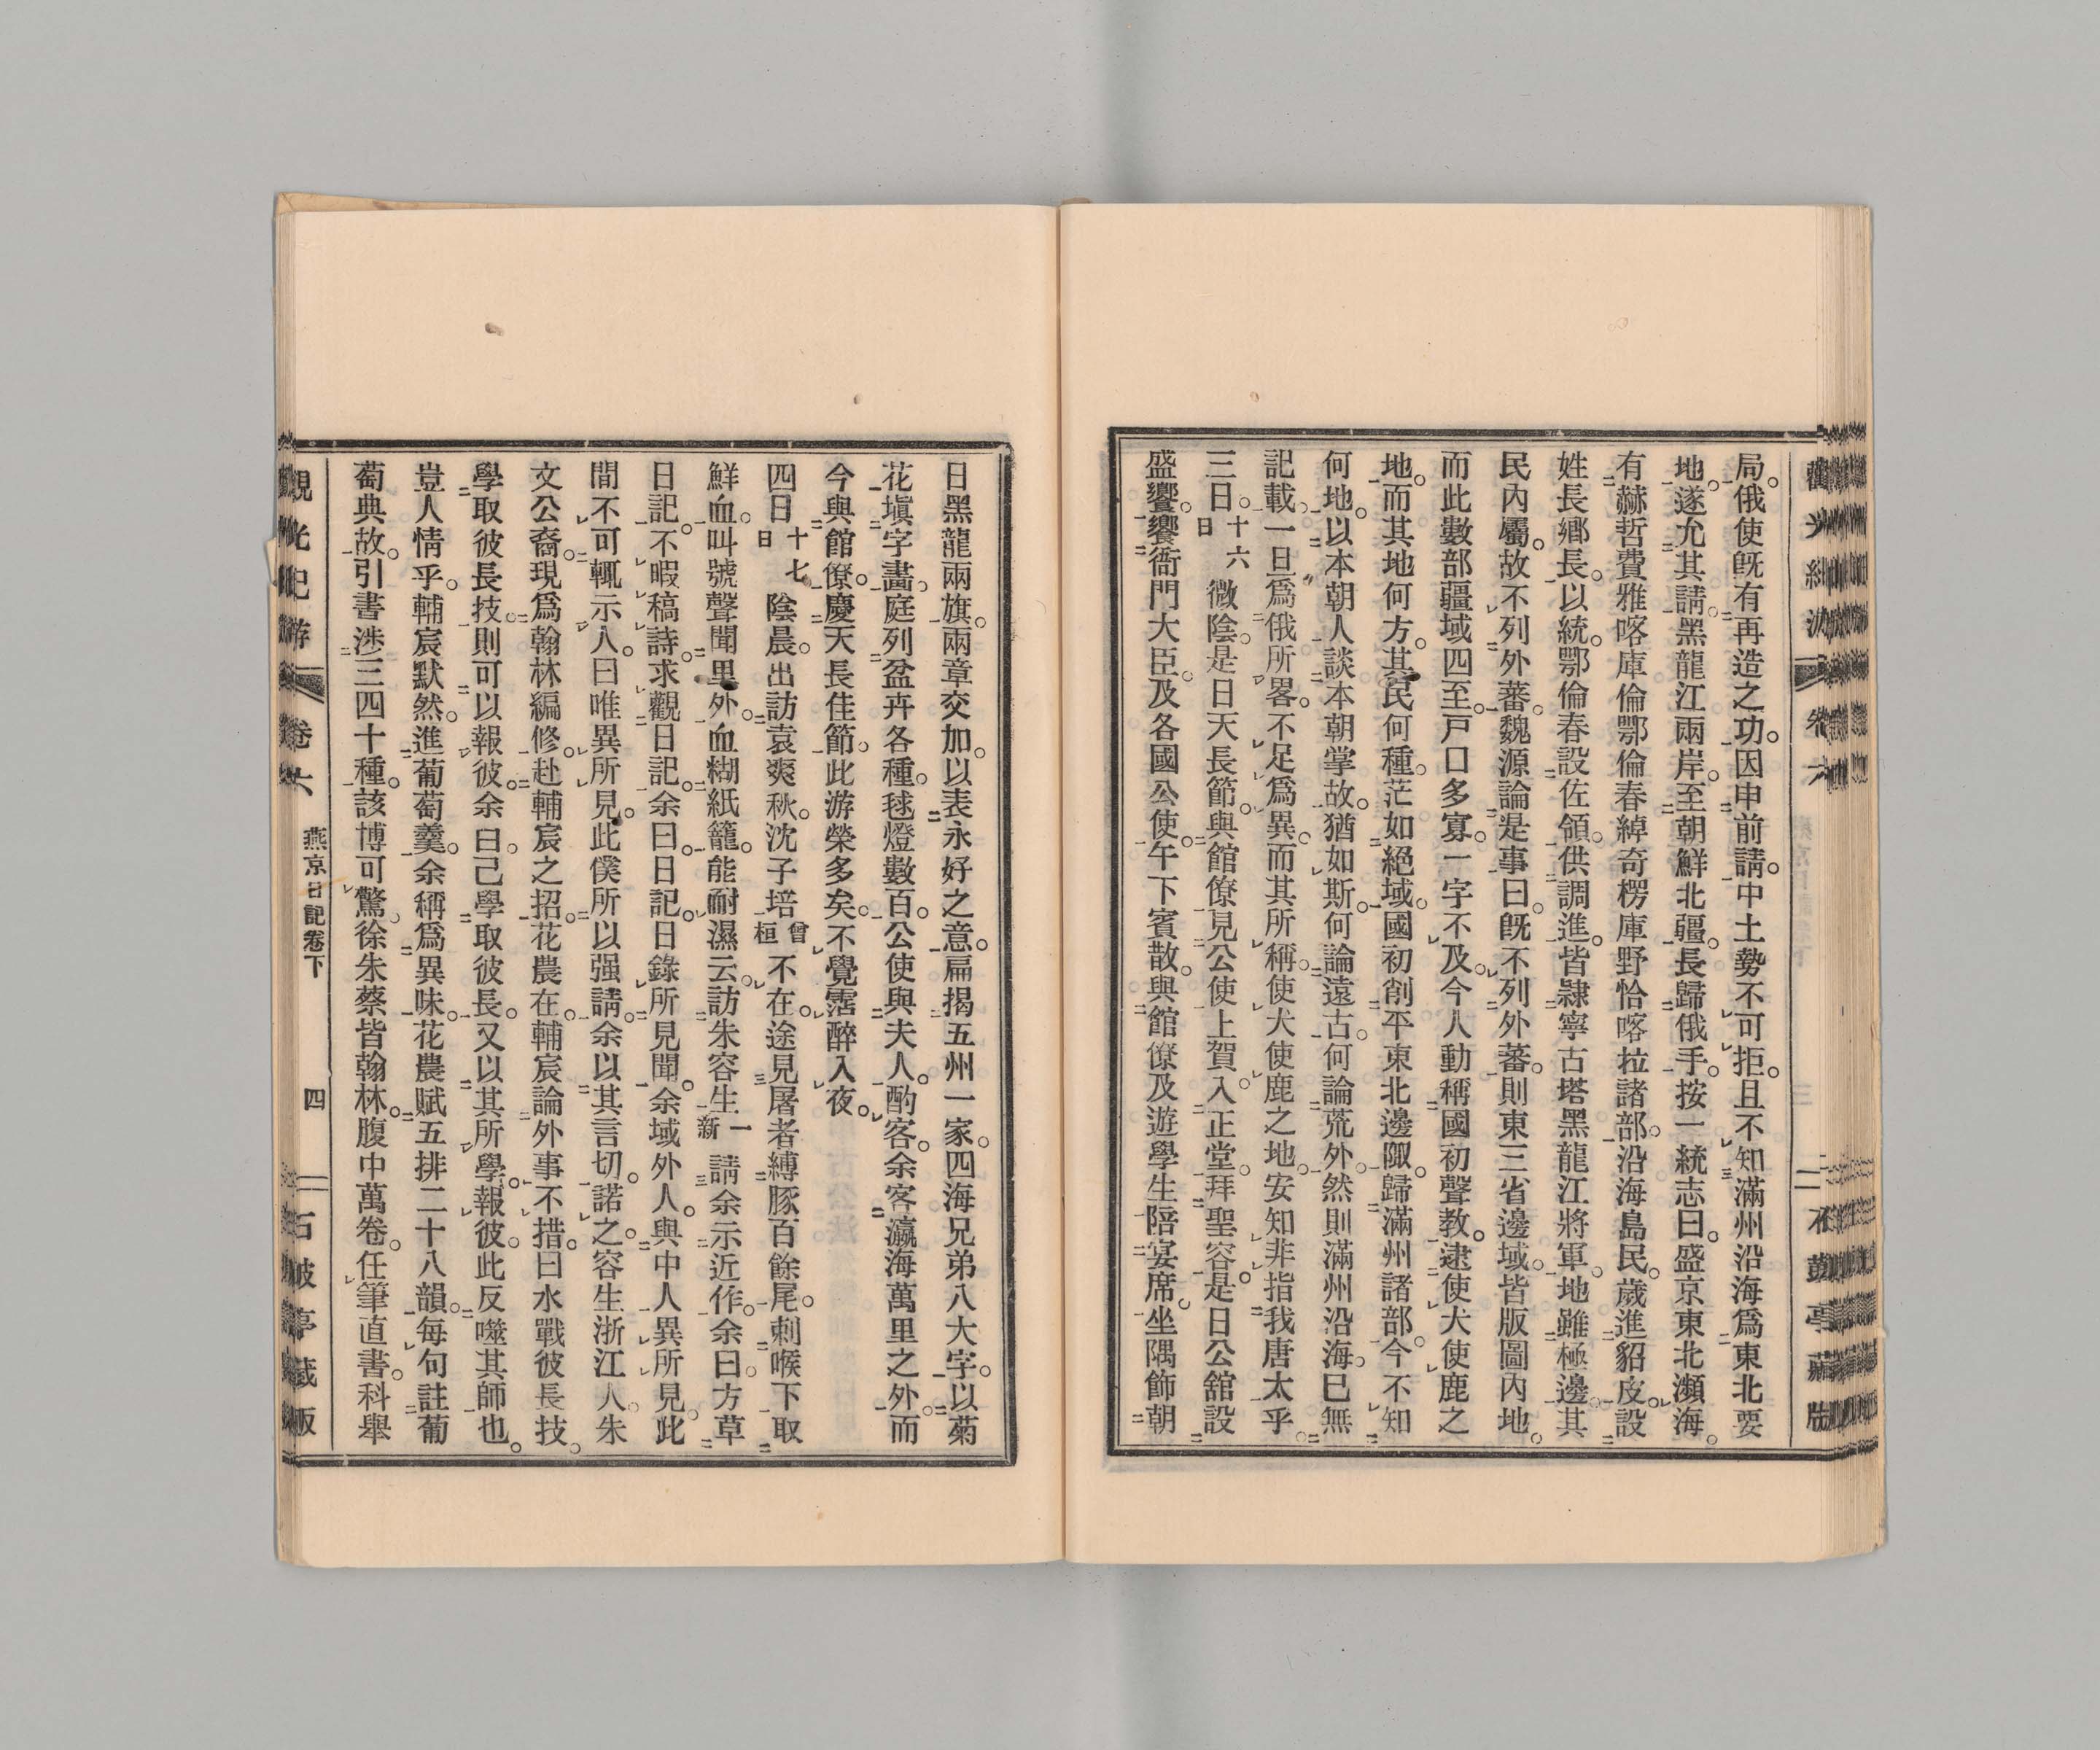 局。俄使旣有再造之功。因申前請。中土勢不可拒。且不知滿州沿海爲東北要
地。遂允其請。黑龍江兩岸。至朝鮮北疆。長歸俄手。按一統志曰。盛京東北瀕海。
有赫哲費雅喀庫倫鄂倫春綽奇楞庫野恰喀拉諸部。沿海島民。歲進貂皮。設
姓長鄕長。以統。鄂倫春設佐領。供調進。皆隸寧古塔黑龍江將軍。地雖極邊。其
民內屬。故不列外蕃。魏源論是事曰。旣不列外蕃。則東三省邊域。皆版圖內地。
而此數部疆域四至。戸口多寡。一字不及。今人動稱國初聲教。逮使犬使鹿之
地。而其地何方。其民何種。茫如絕域。國初削平東北邊陬。歸滿州諸部。今不知
何地。以本朝人談本朝掌故。猶如斯。何論遠古。何論荒外。然則滿州沿海。巳無
記載。一旦爲俄所畧。不足爲異。而其所稱。使犬使鹿之地。安知非指我唐太乎。
三日。十六日微陰。是日天長節。與館僚見公使上賀。入正堂。拜聖容。是日公舘設
盛饗。饗衙門大臣。及各國公使。午下賓散。與館僚及遊學生陪宴席。坐隅飾朝
日黑龍兩旗。兩章交加。以表永好之意。扁揭五州一家。四海兄弟八大字。以菊
花塡字畫。庭列盆卉各種。毬燈數百。公使與夫人。酌客。余客瀛海萬里之外。而
今與館僚。慶天長佳節。此游榮多矣。不覺霑醉入夜。
四日十七日陰晨。出訪袁爽秋。沈子培曾桓不在。途見屠者縛豚百餘尾。刺喉下取
鮮血。叫號聲聞里外。血糊紙籠。能耐濕云。訪朱容生一新請余示近作。余曰。方草
日記。不暇稿詩。求觀日記。余曰。日記。日錄所見聞。余域外人。與中人異所見。此
間不可輒示人。曰唯異所見。此僕所以强請。余以其言切。諾之。容生浙江人。朱
文公裔。現爲翰林編修。赴輔宸之招。花農在。輔宸論外事不措。曰水戰彼長技。
學取彼長技。則可以報彼。余曰。己學取彼長。又以其所學。報彼。此反噬其師也。
豈人情乎。輔宸默然。進葡萄羹。余稱爲異味。花農賦五排二十八韻。每句註葡
萄典故。引書涉三四十種。該博可驚。徐朱蔡皆翰林。腹中萬卷。任筆直書。科舉
觀光紀游 卷六 燕京日記卷下 四 石皷亭藏版